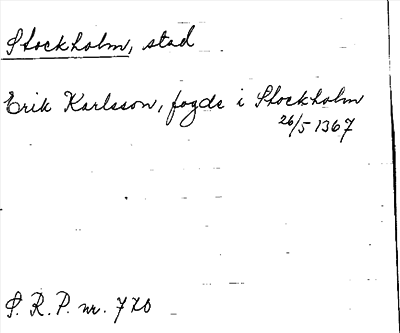 Stockholm, stad
Erik Karlsson, fogde i Stockholm
26/5 1367
S. R. P. nr. 720